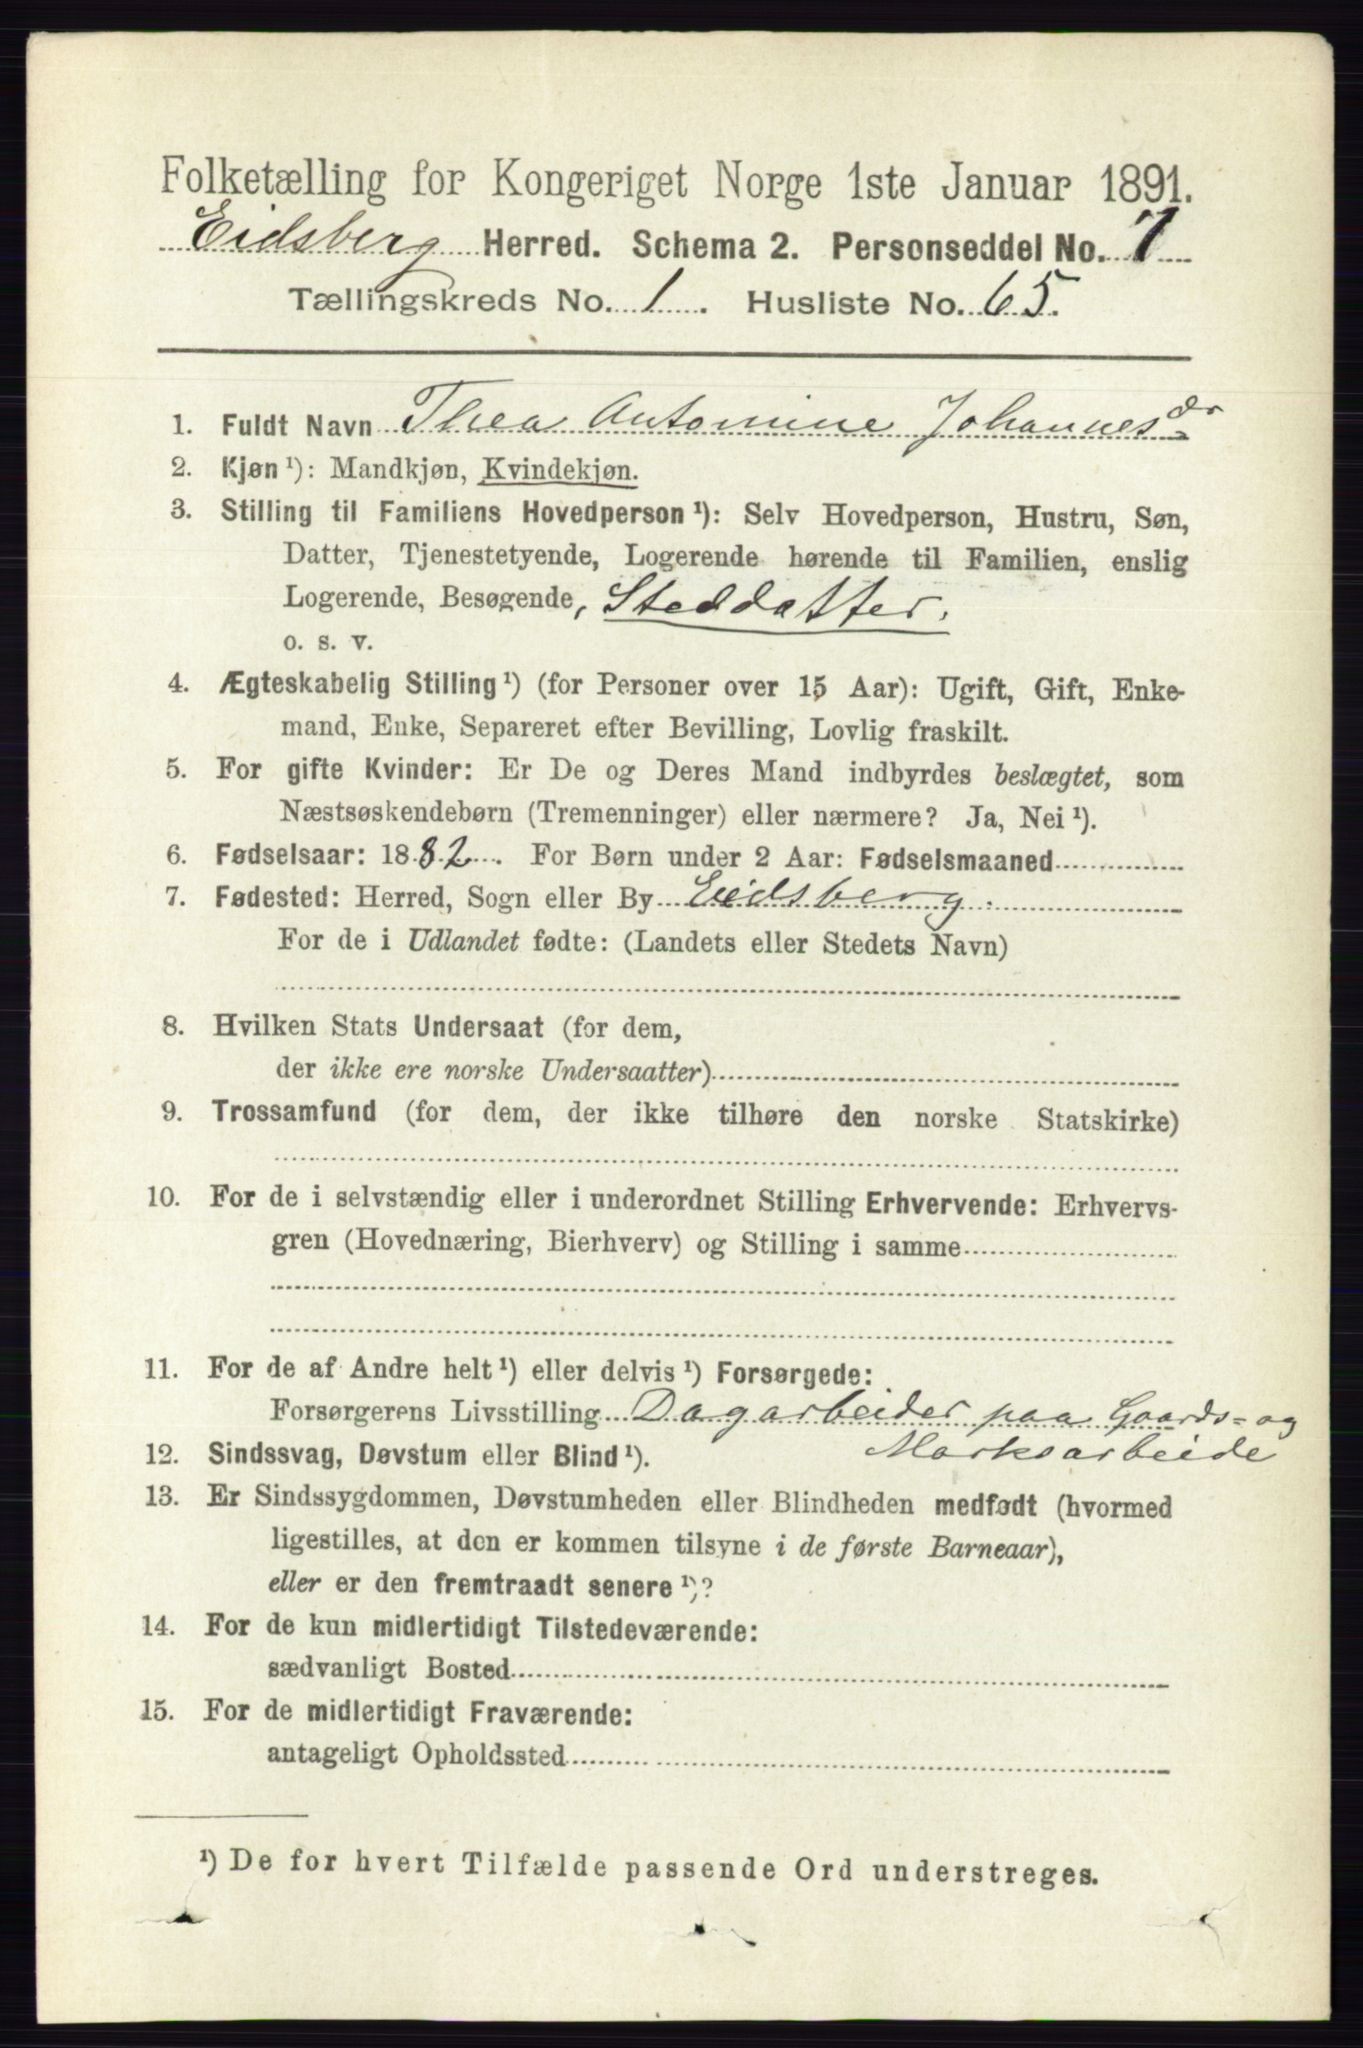 Folketælling for Kongeriget Norge 1ste Januar 1891.
Eidsberg Herred. Schema 2. Personseddel No. 7
Tællingskreds No. 1. Husliste No. 65.
1. Fuldt Navn Thea Antomine Johannesdr
2. Kjøn ¹): Mandkjøn, Kvindekjøn.
3. Stilling til Familiens Hovedperson ¹): Selv Hovedperson, Hustru, Søn,
Datter, Tjenestetyende, Logerende hørende til Familien, enslig
Logerende, Besøgende, Steddatter.
o. s. v.
4. Ægteskabelig Stilling ¹) (for Personer over 15 Aar): Ugift, Gift, Enke-
mand, Enke, Separeret efter Bevilling, Lovlig fraskilt.
5. For gifte Kvinder: Er De og Deres Mand indbyrdes beslægtet, som
Næstsøskendebørn (Tremenninger) eller nærmere? Ja, Nei ¹).
6. Fødselsaar: 1882. For Børn under 2 Aar: Fødselsmaaned
7. Fødested: Herred, Sogn eller By Eidsberg.
For de i Udlandet fødte: (Landets eller Stedets Navn)
8. Hvilken Stats Undersaat (for dem,
der ikke ere norske Undersaatter)
9. Trossamfund (for dem, der ikke tilhøre den norske Statskirke)
10. For de i selvstændig eller i underordnet Stilling Erhvervende: Erhvervs-
gren (Hovednæring, Bierhverv) og Stilling i samme
11. For de af Andre helt ¹) eller delvis ¹) Forsørgede:
Forsørgerens Livsstilling Dagarbeider paa Gaards- og
Marksarbeide
12. Sindssvag, Døvstum eller Blind ¹).
13. Er Sindssygdommen, Døvstumheden eller Blindheden medfødt (hvormed
ligestilles, at den er kommen tilsyne i de første Barneaar),
eller er den fremtraadt senere ¹)?
14. For de kun midlertidigt Tilstedeværende:
sædvanligt Bosted
15. For de midlertidigt Fraværende:
antageligt Opholdssted
¹) De for hvert Tilfælde passende Ord understreges.